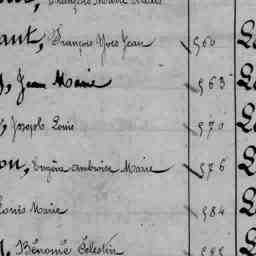 ant, François Yves Jean 560 L
, Jean Marie 563 L
, Joseph Louis 570 L
on, Eugène Ambroise Marie 576 L
Louis Marie 584 L
, Bénomé Célestin